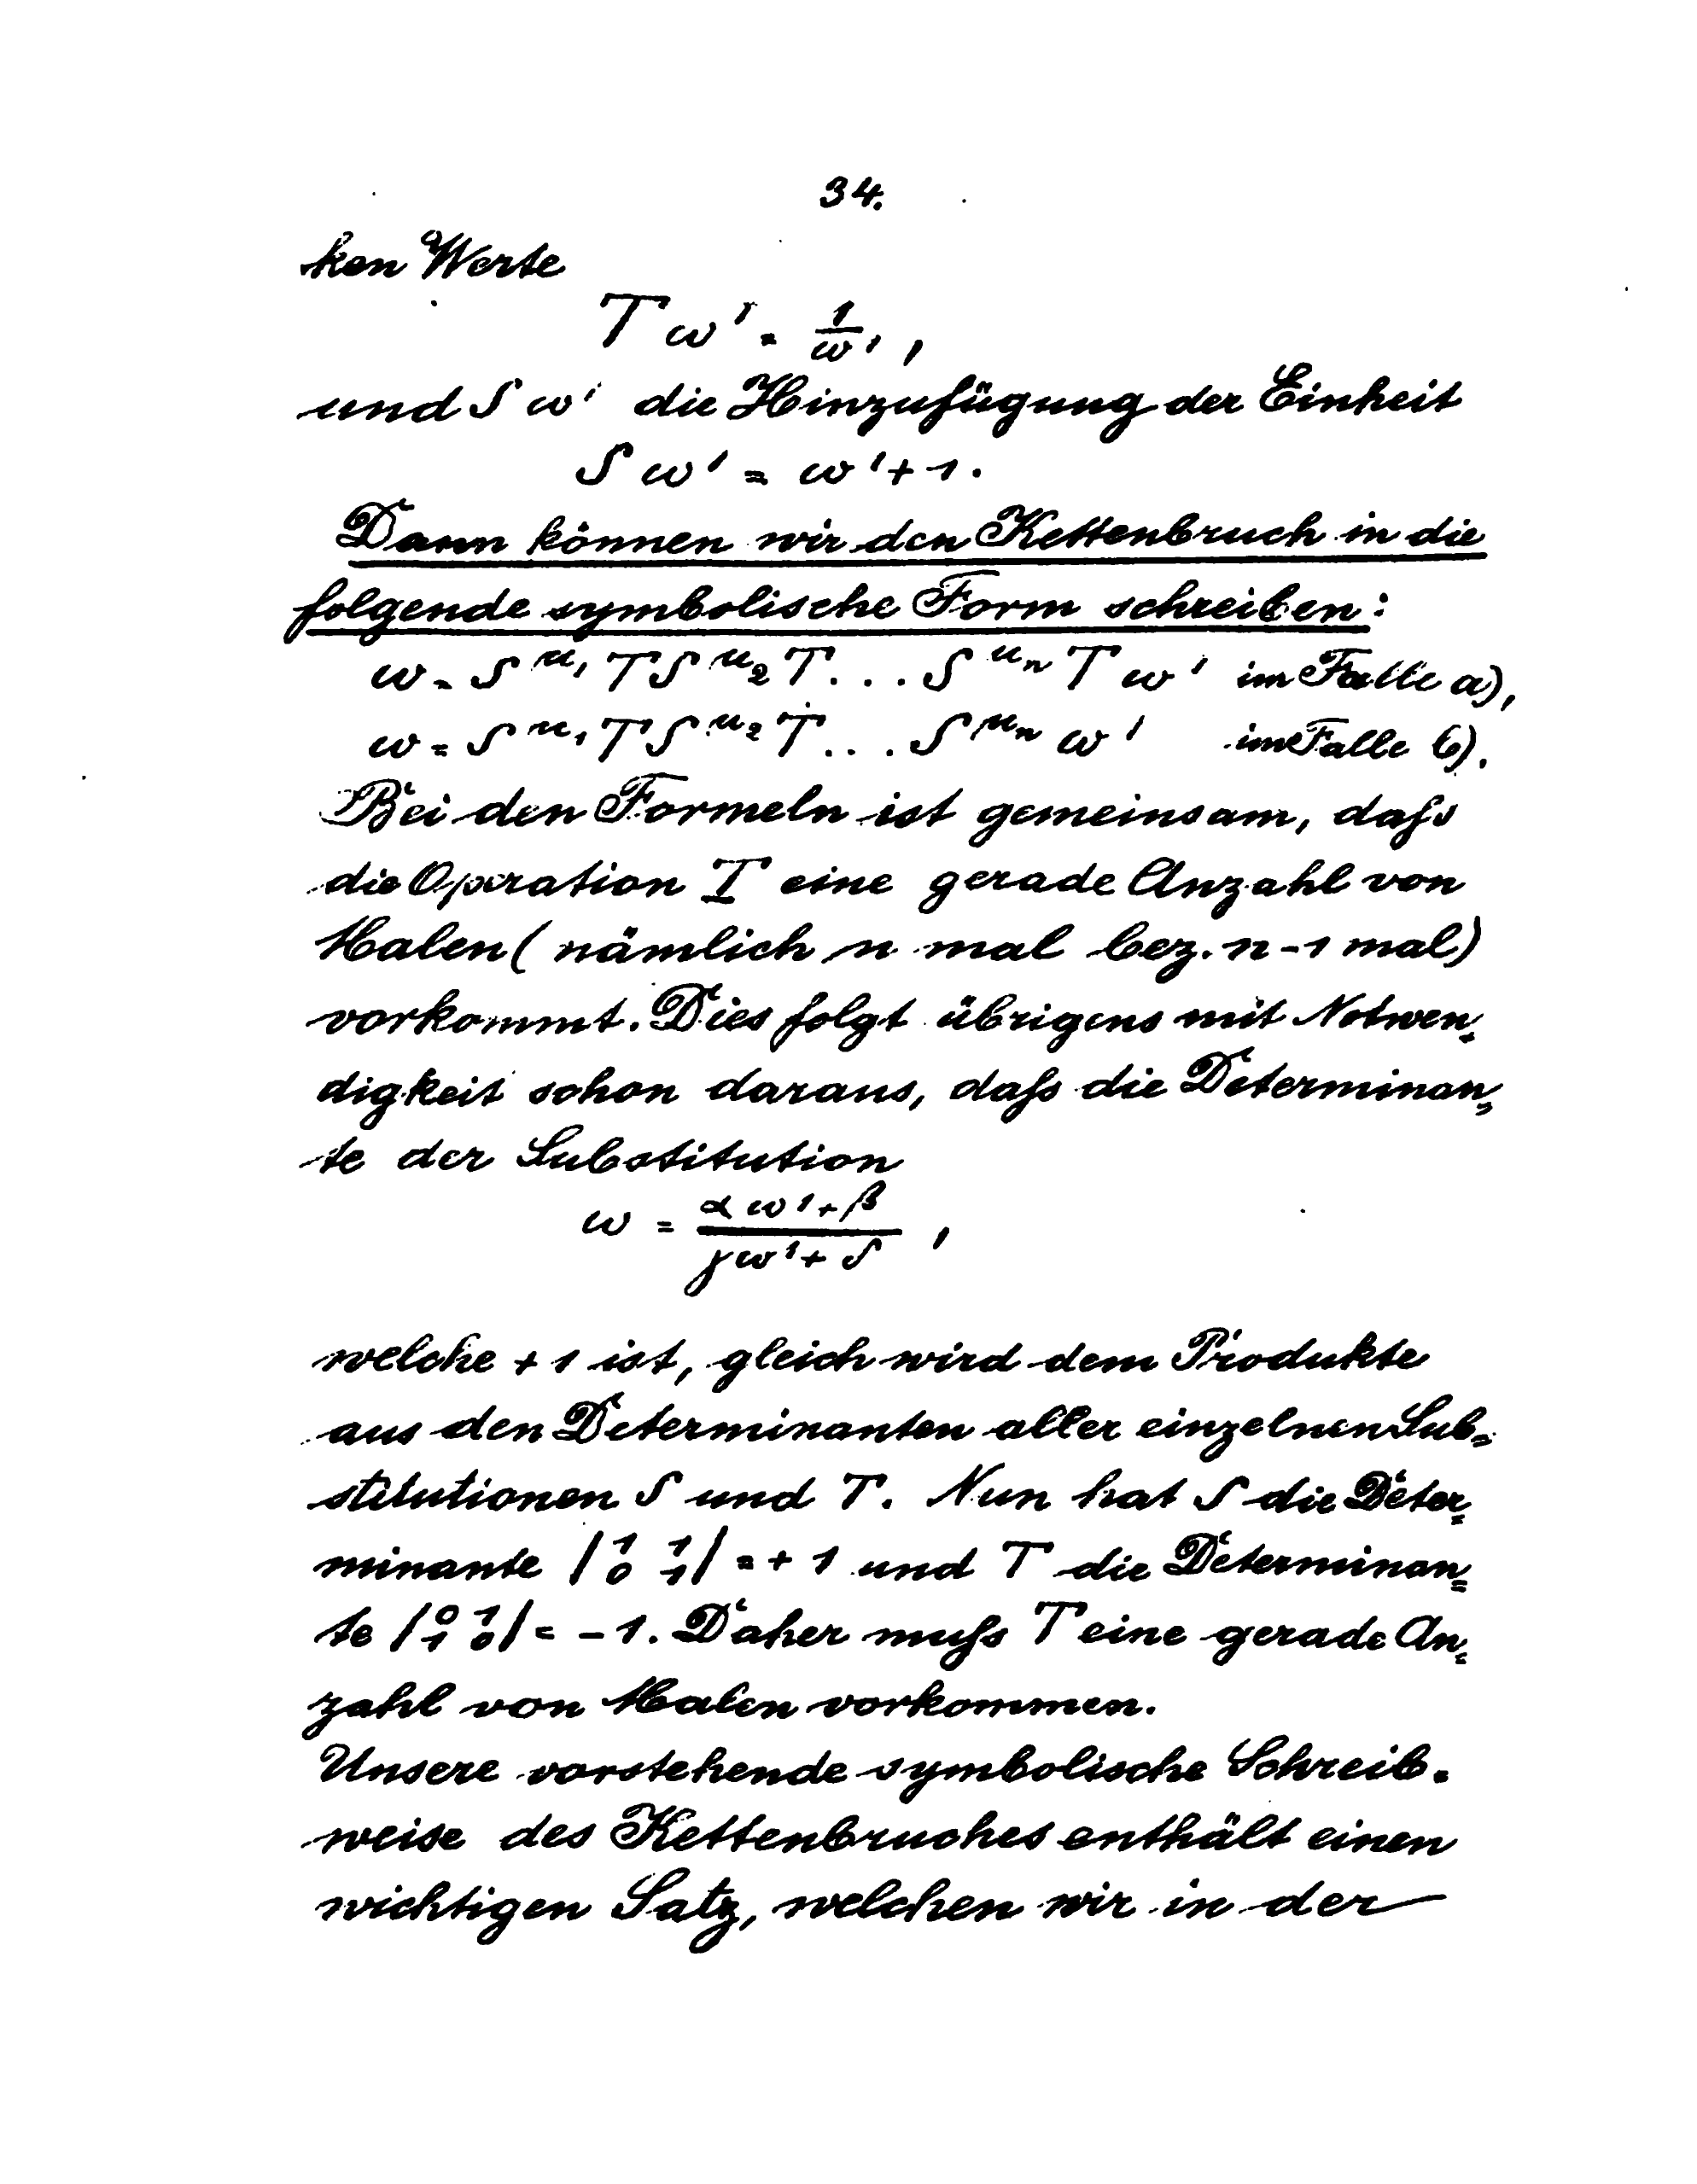 34.
ken Werte
T ω' = 1/ω',
und S ω' die Hinzufügung der Einheit
S ω' = ω' + 1.
Dann können wir den Kettenbruch in die
folgende symbolische Form schreiben:
ω = S^μ₁ T S^μ₂ T . . . S^μₙ T ω' im Falle a),
ω = S^μ₁ T S^μ₂ T . . . S^μₙ ω' im Falle b).
Bei den Formeln ist gemeinsam, dafs
die Operation T eine gerade Anzahl von
Malen (nämlich n mal bez. n-1 mal)
vorkommt. Dies folgt übrigens mit Notwen-
digkeit schon daraus, dafs die Determinan-
te der Substitution
ω = (αω' + β)/(γω' + δ),
welche + 1 ist, gleich wird dem Produkte
aus den Determinanten aller einzelnen Sub-
stitutionen S und T. Nun hat S die Deter-
minante |1 1 0 1| = + 1 und T die Determinan-
te |0 1 1 0| = - 1. Daher mufs T eine gerade An-
zahl von Malen vorkommen.
Unsere vorstehende symbolische Schreib-
weise des Kettenbruches enthält einen
wichtigen Satz, welchen wir in der